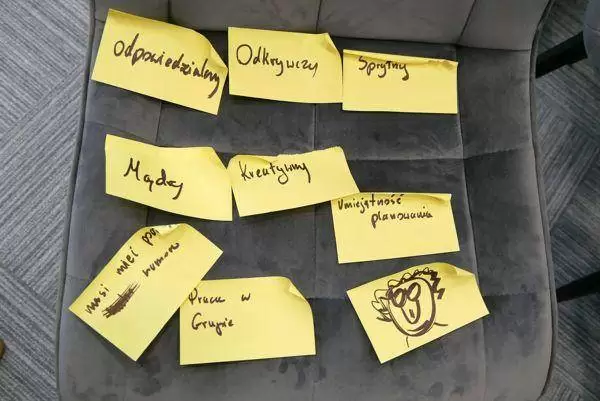 Odpowiedzialny
Odkrywczy
Sprytny
Mądry
Kreatywny
Umiejętność
planowania
musi mieć po
humoru
Praca w
Grupie